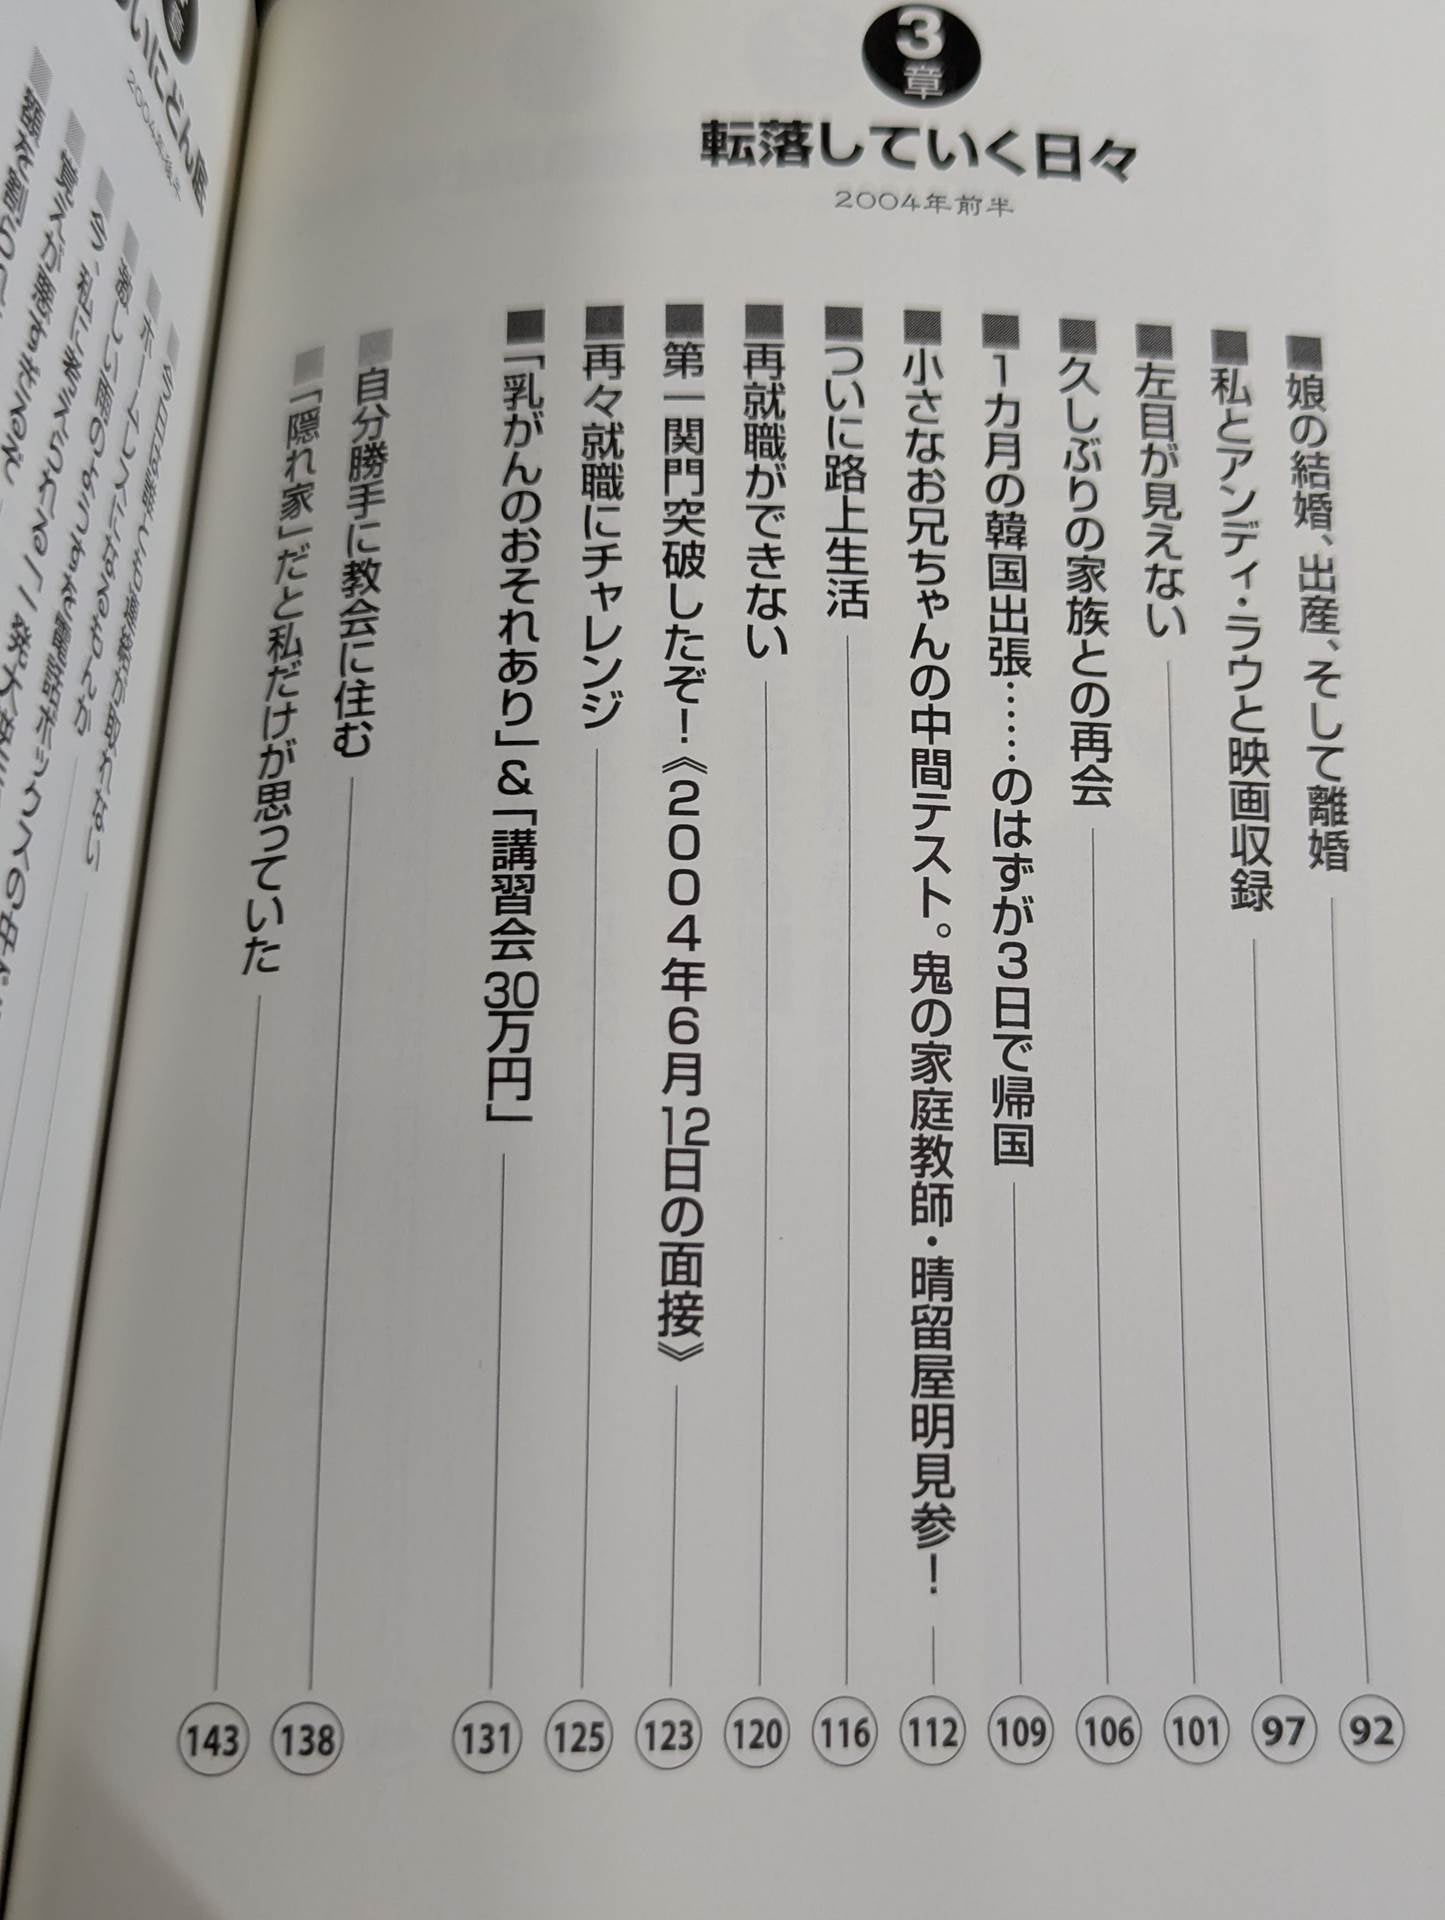 3章
転落していく日々
2004年前半
娘の結婚、出産、そして離婚 92
私とアンディ・ラウと映画収録 97
左目が見えない 101
久しぶりの家族との再会 106
1カ月の韓国出張……のはずが3日で帰国 109
小さなお兄ちゃんの中間テスト。鬼の家庭教師・晴留屋明見参! 112
ついに路上生活 116
再就職ができない 120
第一関門突破したぞ!《2004年6月12日の面接》 123
再々就職にチャレンジ 125
「乳がんのおそれあり」&「講習会30万円」 131
自分勝手に教会に住む 138
「隠れ家」だと私だけが思っていた 143
章
いにどん底
2004年後半